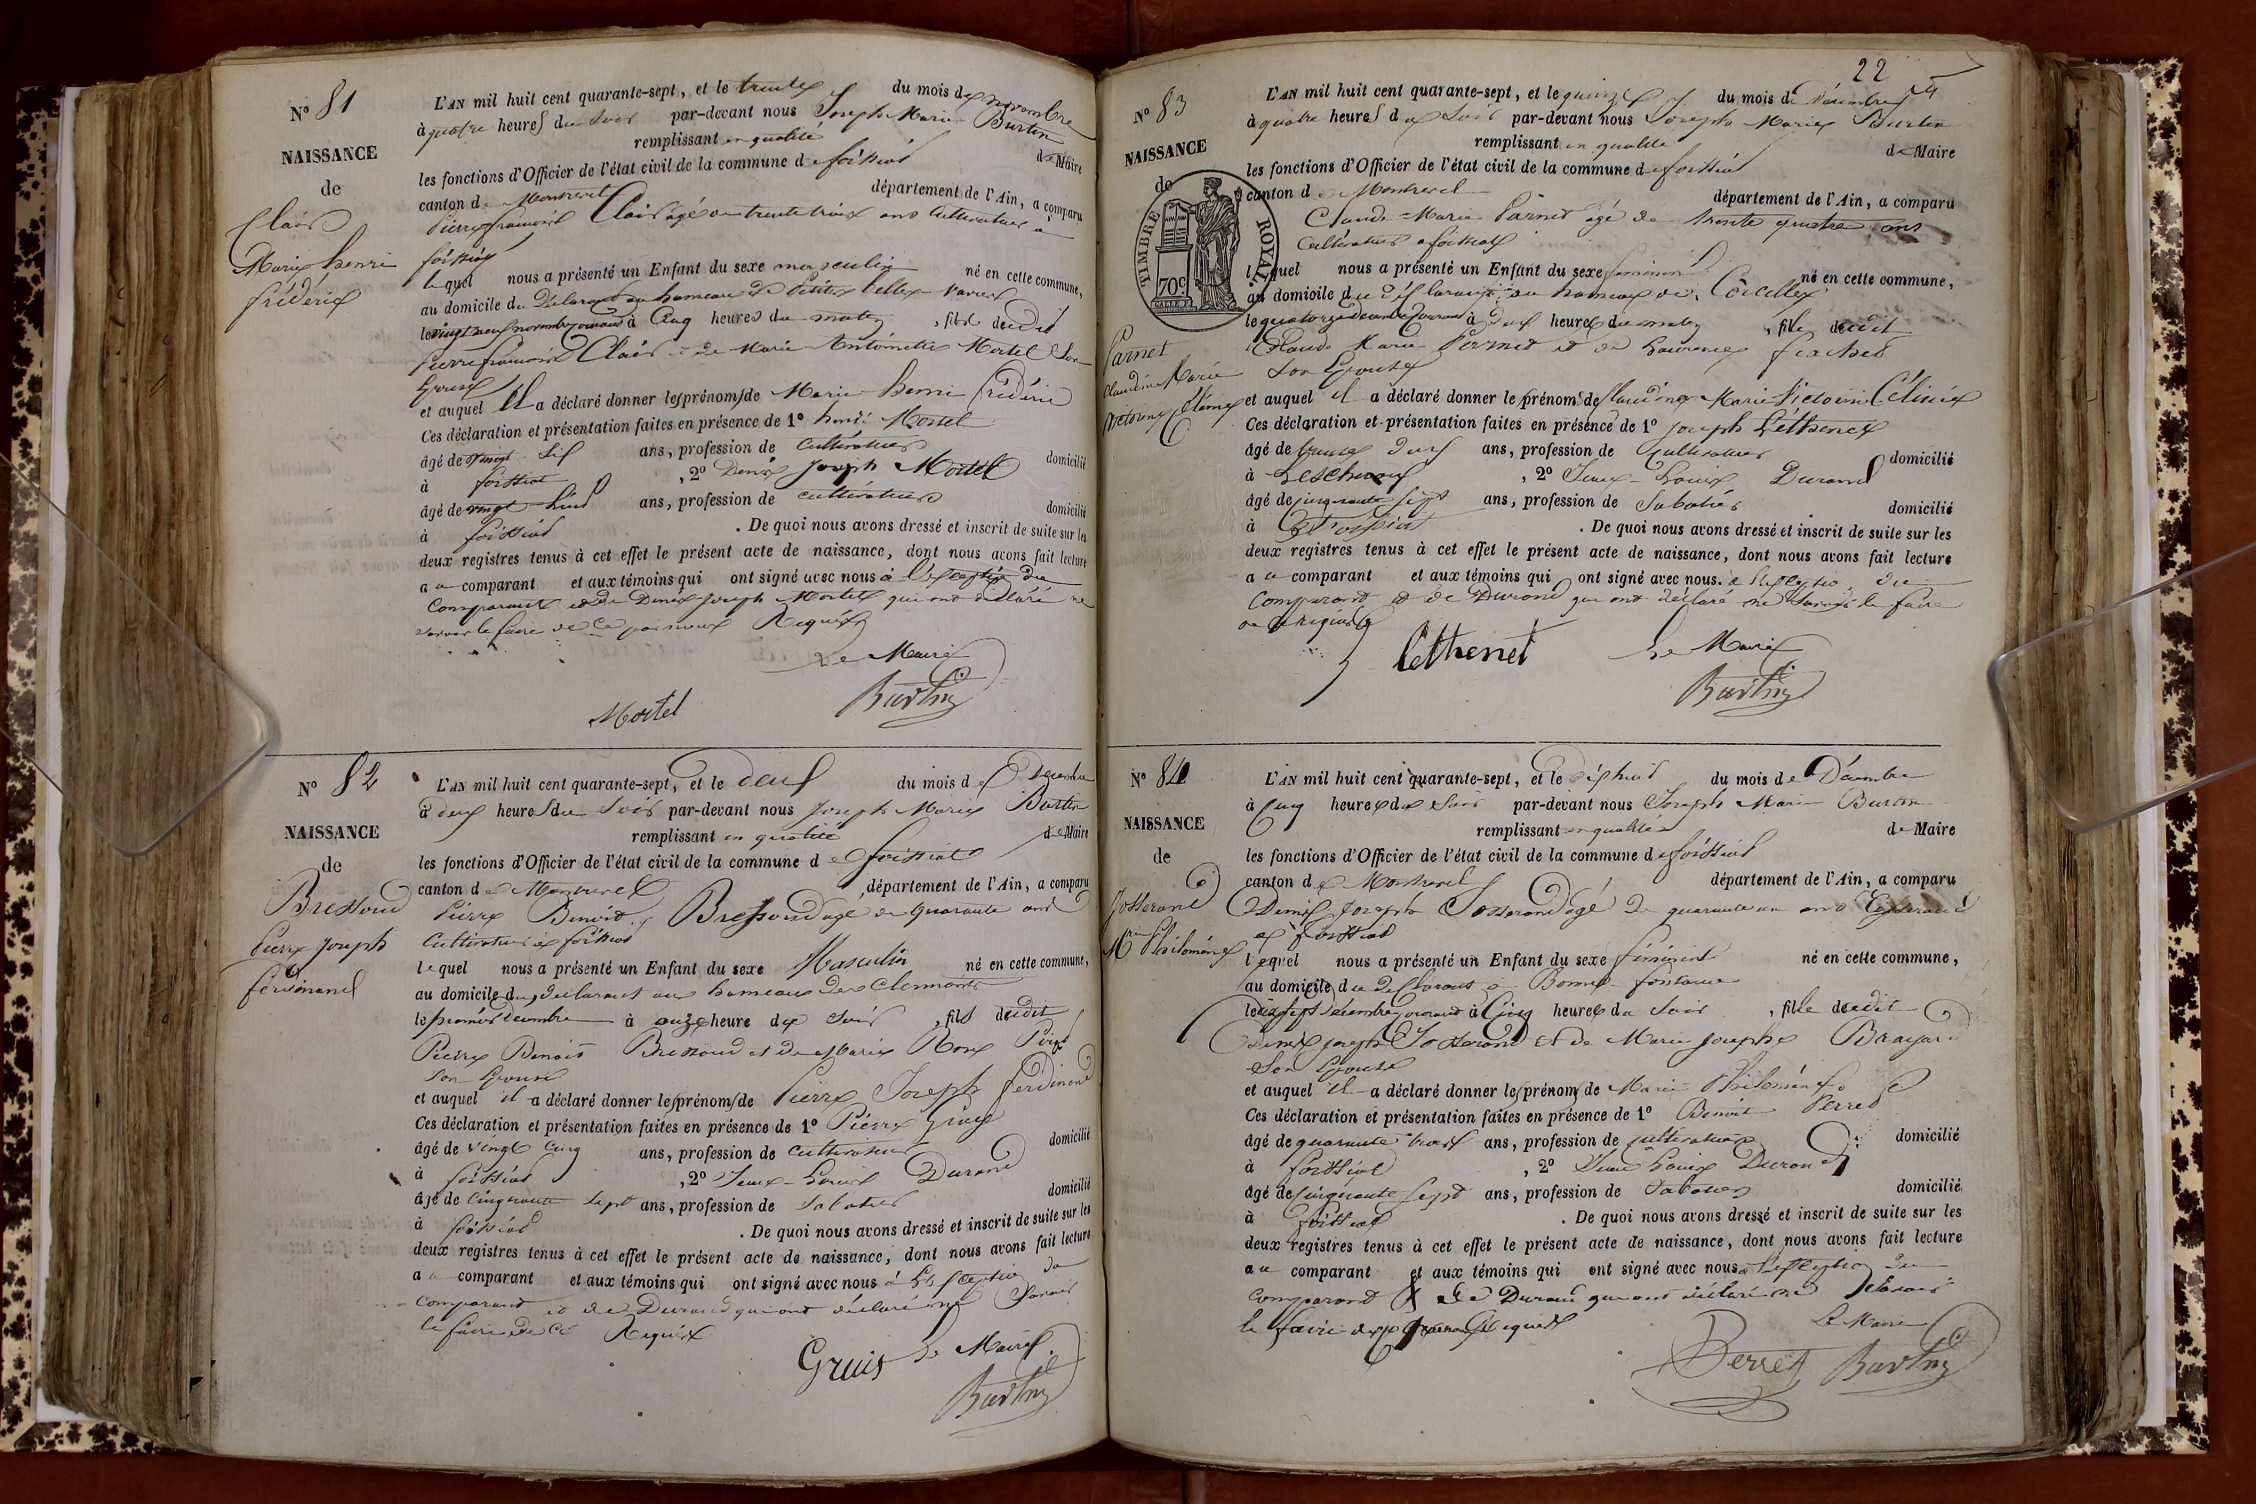 Nº 81
NAISSANCE
de
Clair
Marie henri
fréderic
L'AN mil huit cent quarante-sept, et le trente du mois de novembre
à quatre heures du Soir par-devant nous Joseph Marie Burtin
remplissant en qualité de Maire
les fonctions d'Officier de l'état civil de la commune de foissiat
canton de Montrevel département de l'Ain, a comparu
Pierre françois Clair agé de trente trois ans Cultivateur à
foissiat
lequel nous a présenté un Enfant du sexe masculin né en cette commune,
au domicile du déclarant au hameau de
le vingt neuf novembre courant à Cinq heures du matin, fils dudit
Pierre françois Clair et de Marie Antoinette Mortel Son
Epouse
et auquel il a déclaré donner les prénoms de Marie henri frédéric
Ces déclaration et présentation faites en présence de 1º henri Mortel
âgé de vingt Six ans, profession de Cultivateur domicilié
à foissiat, 2º Denis Joseph Mortel
âgé de vingt huit ans, profession de cultivateur domicilié
à foissiat. De quoi nous avons dressé et inscrit de suite sur les
deux registres tenus à cet effet le présent acte de naissance, dont nous avons fait lecture
au comparant et aux témoins qui ont signé avec nous à l'exception du
Comparant et de Denis Joseph Mortel qui ont déclaré ne
savoir le faire de ce Requis
Le Maire
Mortel Burtin
Nº 82
NAISSANCE
de
Bressoud
Pierre Joseph
ferdinand
L'AN mil huit cent quarante-sept, et le deux du mois de Décembre
à deux heures du Soir par-devant nous Joseph Marie Burtin
remplissant en qualité de Maire
les fonctions d'Officier de l'état civil de la commune de foissiat
canton de Montrevel, département de l'Ain, a comparu
Pierre Benoit Bressoud agé de quarante ans
Cultivateur à foissiat
lequel nous a présenté un Enfant du sexe Masculin né en cette commune,
au domicile du déclarant au hameau des Clermonts
le premier Décembre à onze heure du Soir, fils dudit
Pierre Benoit Bressoud et de Marie
Son Epouse
et auquel il a déclaré donner les prénoms de Pierre Joseph ferdinand
Ces déclaration et présentation faites en présence de 1º Pierre Gruis
âgé de vingt Cinq ans, profession de cultivateur domicilié
à foissiat, 2º Jean-Louis Durand
âgé de Cinquante Sept ans, profession de Sabotier domicilié
à foissiat. De quoi nous avons dressé et inscrit de suite sur les
deux registres tenus à cet effet le présent acte de naissance, dont nous avons fait lecture
au comparant et aux témoins qui ont signé avec nous à L'exception du
Comparant et de Durand qui ont déclaré ne Savoir
le faire de ce Requis
Gruis Le Maire
Burtin
22
Nº 83
NAISSANCE
de
TIMBRE ROYAL.
70 C.
Parnet
Claudine Marie
Victorine Célénie
L'AN mil huit cent quarante-sept, et le quinze du mois de Décembre
à quatre heures du Soir par-devant nous Joseph Marie Burtin
remplissant en qualité de Maire
les fonctions d'Officier de l'état civil de la commune de foissiat
canton de Montrevel département de l'Ain, a comparu
Claude-Marie Parnet agé de trente quatre ans
Cultivateur à foissiat
lequel nous a présenté un Enfant du sexe feminin né en cette commune,
au domicile du déclarant au hameau de Corcelles
le quatorze décembre Courant à deux heures du matin, fille dudit
Claude Marie Parnet et de Laurence
Son Epouse
et auquel il a déclaré donner le prénoms de Claudine Marie Victorine Célinie
Ces déclaration et présentation faites en présence de 1º Joseph Léthenet
âgé de trente deux ans, profession de Cultivateur domicilié
à Lescheroux, 2º Jean-Louis Durand
âgé de cinquante sept ans, profession de Sabotier domicilié
à foissiat. De quoi nous avons dressé et inscrit de suite sur les
deux registres tenus à cet effet le présent acte de naissance, dont nous avons fait lecture
au comparant et aux témoins qui ont signé avec nous. à l'exception du
Comparant et de Durand qui ont déclaré ne savoir le faire
de ce requis
Lethenet Le Maire
Burtin
Nº 84
NAISSANCE
de
Josserand
Mie Philomène
L'AN mil huit cent quarante-sept, et le dix huit du mois de Décembre
à Cinq heures du Soir par-devant nous Joseph Marie Burtin
remplissant en qualité de Maire
les fonctions d'Officier de l'état civil de la commune de foissiat
canton de Montrevel département de l'Ain, a comparu
Denis Joseph Josserand agé de quarante un ans
à foissiat
lequel nous a présenté un Enfant du sexe féminin né en cette commune,
au domicile du déclarant à Bonne fontaine
le dix sept décembre courant à Cinq heures du Soir, fille dudit
Denis Joseph Josserand et de Marie Josephe Brayard
Son Epouse
et auquel il a déclaré donner les prénoms de Marie Philomène
Ces déclaration et présentation faites en présence de 1º Benoit Perret
âgé de quarante trois ans, profession de cultivateur domicilié
à foissiat, 2º Jean Louis Durand
âgé de Cinquante Sept ans, profession de Sabotier domicilié
à foissiat. De quoi nous avons dressé et inscrit de suite sur les
deux registres tenus à cet effet le présent acte de naissance, dont nous avons fait lecture
au comparant et aux témoins qui ont signé avec nous à l'exception du
Comparant & de Durand qui ont déclaré ne Savoir
le faire de ce requis
Le Maire
Perret Burtin